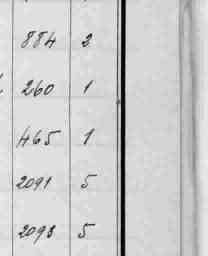 884 3
260 1
465 1
2091 5
2098 5